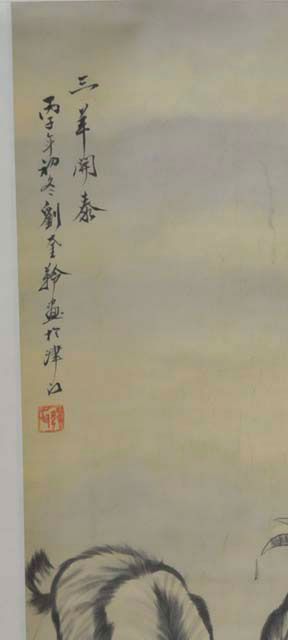 三羊開泰
丙子年初冬劉奎齡画於津门